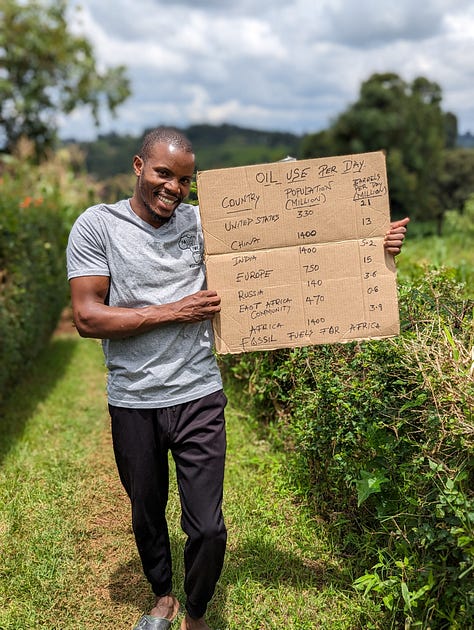 OIL USE PER DAY
COUNTRY POPULATION (MILLION) BARRELS PER DAY (MILLION)
UNITED STATES 330 21
CHINA 1400 13
INDIA 1400 5.2
EUROPE 750 15
RUSSIA 140 3.6
EAST AFRICA COMMUNITY 470 0.6
AFRICA 1400 3.9
FOSSIL FUELS FOR AFRICA